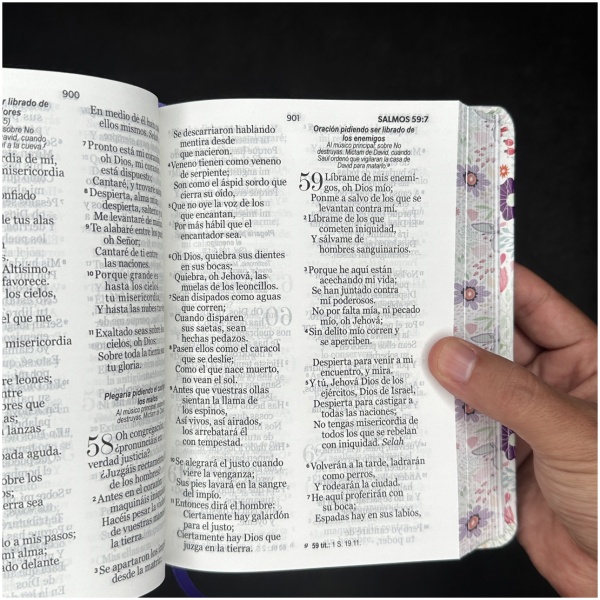 900
r librado de
ores
5)
sobre No
David, cuando
l a la cueva?
rdia de mí,
misericordia
onfiado
de tus alas
Altísimo,
favorece.
los cielos,
el que me
misericordia
re leones;
ntre
bres que
as,
lanzas.
pada aguda.
obre los
s;
ierra sea
o a mis pasos;
mi alma;
ado delante
En medio de
ellos mismos.
7 Pronto está mi
oh Dios, mi
está dispuesto;
Cantaré, y trovaré
8 Despierta, alma
despierta,
Me levantaré de
9 Te alabaré entre los
oh Señor;
Cantaré de ti entre
las naciones.
10 Porque grande
hasta los cielos
tu misericordia,
Y hasta las nubes
11 Exaltado seas sobre
cielos, oh Dios;
Sobre toda la tierra
tu gloria.
Plegaria pidiendo el
los malos
Al músico principal
destruyas.
58 Oh congregación
¿pronunciáis en
verdad justicia?
¿Juzgáis rectamente
de los hombres?
2 Antes en el corazón
maquináis
Hacéis pesar la
de vuestras
la tierra.
3 Se apartaron los
desde la
901
Se descarriaron hablando
mentira desde
que nacieron.
4 Veneno tienen como veneno
de serpiente;
Son como el áspid sordo que
cierra su oído,
5 Que no oye la voz de los
que encantan,
Por más hábil que el
encantador sea.
6 Oh Dios, quiebra sus dientes
en sus bocas;
Quiebra, oh Jehová, las
muelas de los leoncillos.
7 Sean disipados como aguas
que corren;
Cuando disparen
sus saetas, sean
hechas pedazos.
8 Pasen ellos como el caracol
que se deslíe;
Como el que nace muerto,
no vean el sol.
9 Antes que vuestras ollas
sientan la llama de
los espinos,
Así vivos, así airados,
los arrebatará él
con tempestad.
10 Se alegrará el justo cuando
viere la venganza;
Sus pies lavará en la sangre
del impío.
11 Entonces dirá el hombre:
Ciertamente hay galardón
para el justo;
Ciertamente hay Dios que
juzga en la tierra.
SALMOS 59:7
Oración pidiendo ser librado de
los enemigos
Al músico principal: sobre No
destruyas. Mictam de David, cuando
Saúl ordenó que vigilaran la casa de
David para matarlo.
59 Líbrame de mis enemi-
gos, oh Dios mío;
Ponme a salvo de los que se
levantan contra mí.
2 Líbrame de los que
cometen iniquidad,
Y sálvame de
hombres sanguinarios.
3 Porque he aquí están
acechando mi vida;
Se han juntado contra
mí poderosos.
No por falta mía, ni pecado
mío, oh Jehová;
4 Sin delito mío corren y
se aperciben.
Despierta para venir a mi
encuentro, y mira.
5 Y tú, Jehová Dios de los
ejércitos, Dios de Israel,
Despierta para castigar a
todas las naciones;
No tengas misericordia de
todos los que se rebelan
con iniquidad. Selah
6 Volverán a la tarde, ladrarán
como perros,
Y rodearán la ciudad.
7 He aquí proferirán con
su boca;
Espadas hay en sus labios,
59 tít.: 1 S. 19.11.